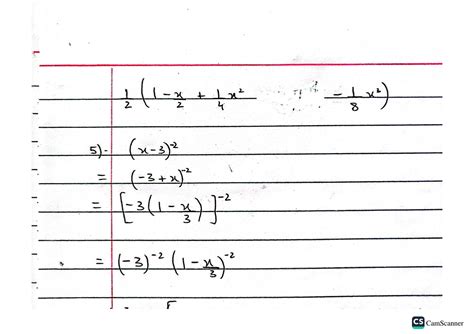 1/2 (1 - x/2 + 1/4 x² - 1/8 x²)
5)· (x-3)⁻²
= (-3+x)⁻²
= [-3(1 - x/3)]⁻²
= (-3)⁻² (1 - x/3)⁻²
CS CamScanner